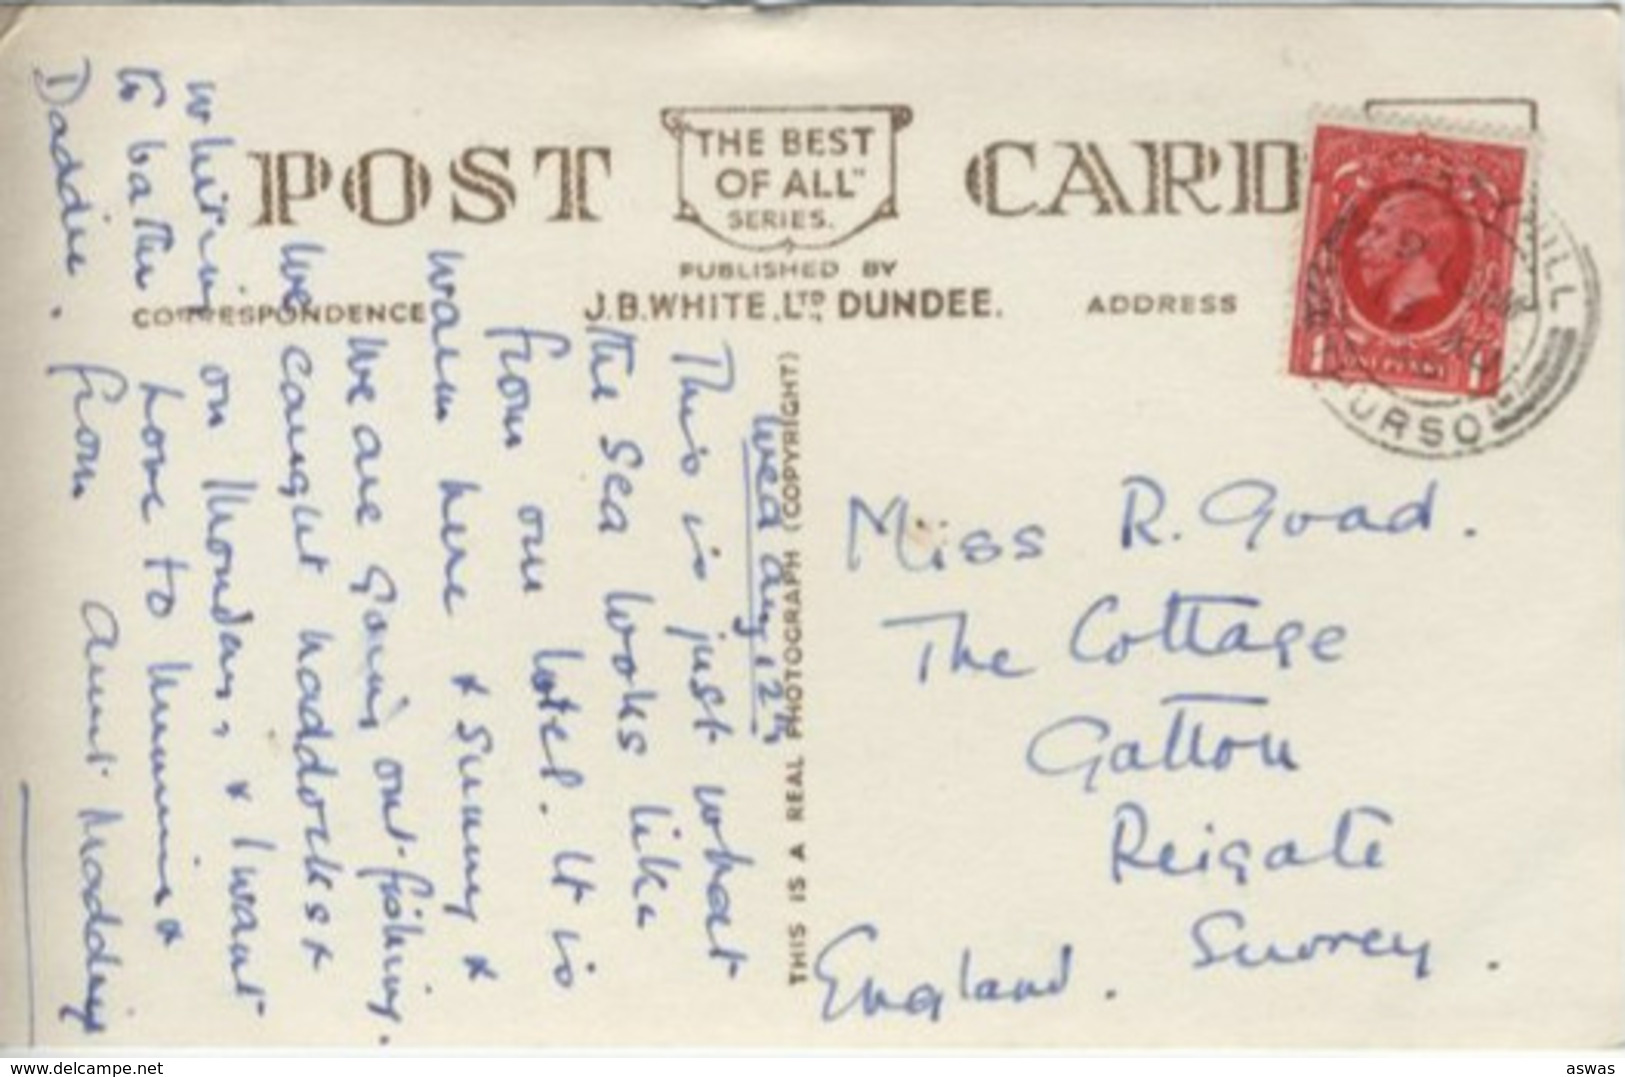 POST CARD
"THE BEST
OF ALL"
SERIES.
PUBLISHED BY
J.B.WHITE. LTD, DUNDEE.
CORRESPONDENCE
ADDRESS
THIS IS A REAL PHOTOGRAPH (COPYRIGHT)
Wed Aug. 12th
This is just what
the sea looks like
from our hotel. It is
warm here & sunny &
we are going out fishing.
We caught haddocks &
whiting on Monday, & I want
to bathe Love to Mummie &
Daddie. from Aunt Madding
Miss R. Goad.
The Cottage
Gatton
Reigate
Surrey.
England.
1 ONE PENNY 1
HILL
URSO
delcampe.net
aswas